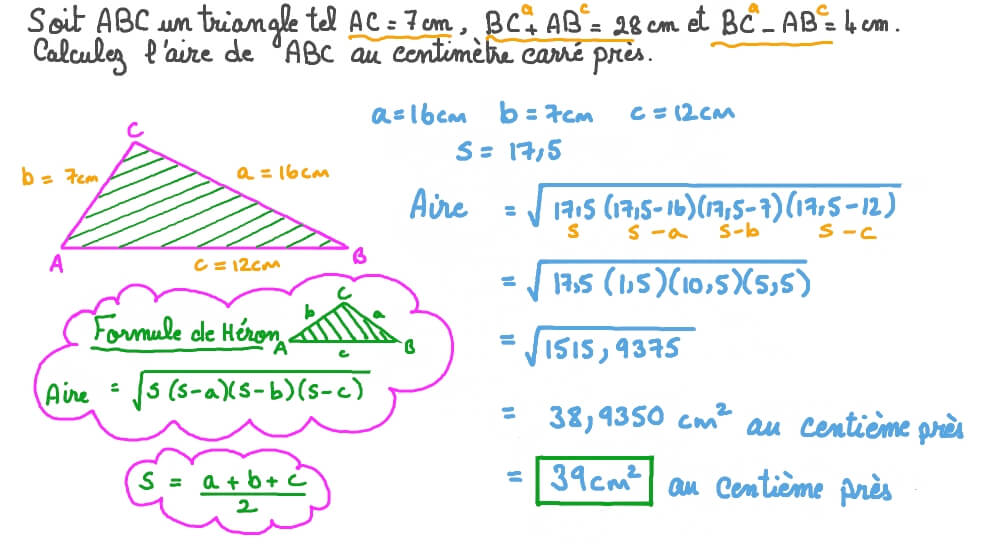 Soit ABC un triangle tel AC = 7cm, BC + AB = 28cm et BC - AB = 4cm.
a c a c
Calculez l'aire de ABC au centimètre carré près.
a = 16cm b = 7cm c = 12cm
s = 17,5
C
b = 7cm
a = 16cm
A
B
c = 12cm
Aire = √17,5 (17,5-16)(17,5-7)(17,5-12)
s s-a s-b s-c
= √17,5 (1,5)(10,5)(5,5)
= √1515,9375
= 38,9350 cm² au centième près
= 39cm² au centième près
Formule de Héron
C
b a
A B
c
Aire = √s(s-a)(s-b)(s-c)
s = a+b+c
2